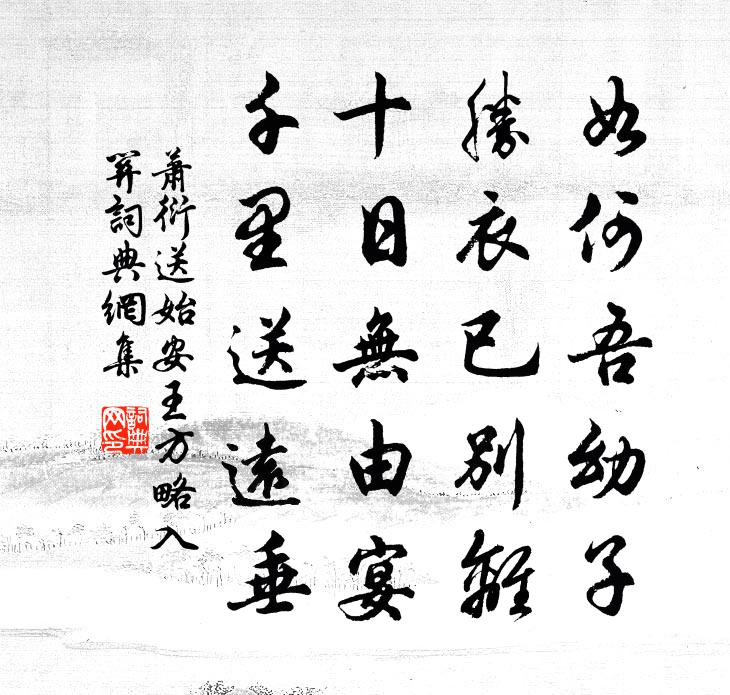 如何吾幼子
勝衣已別離
十日無由宴
千里送遠垂
蕭衍送始安王方略入
關詞典網集
詞典
网印